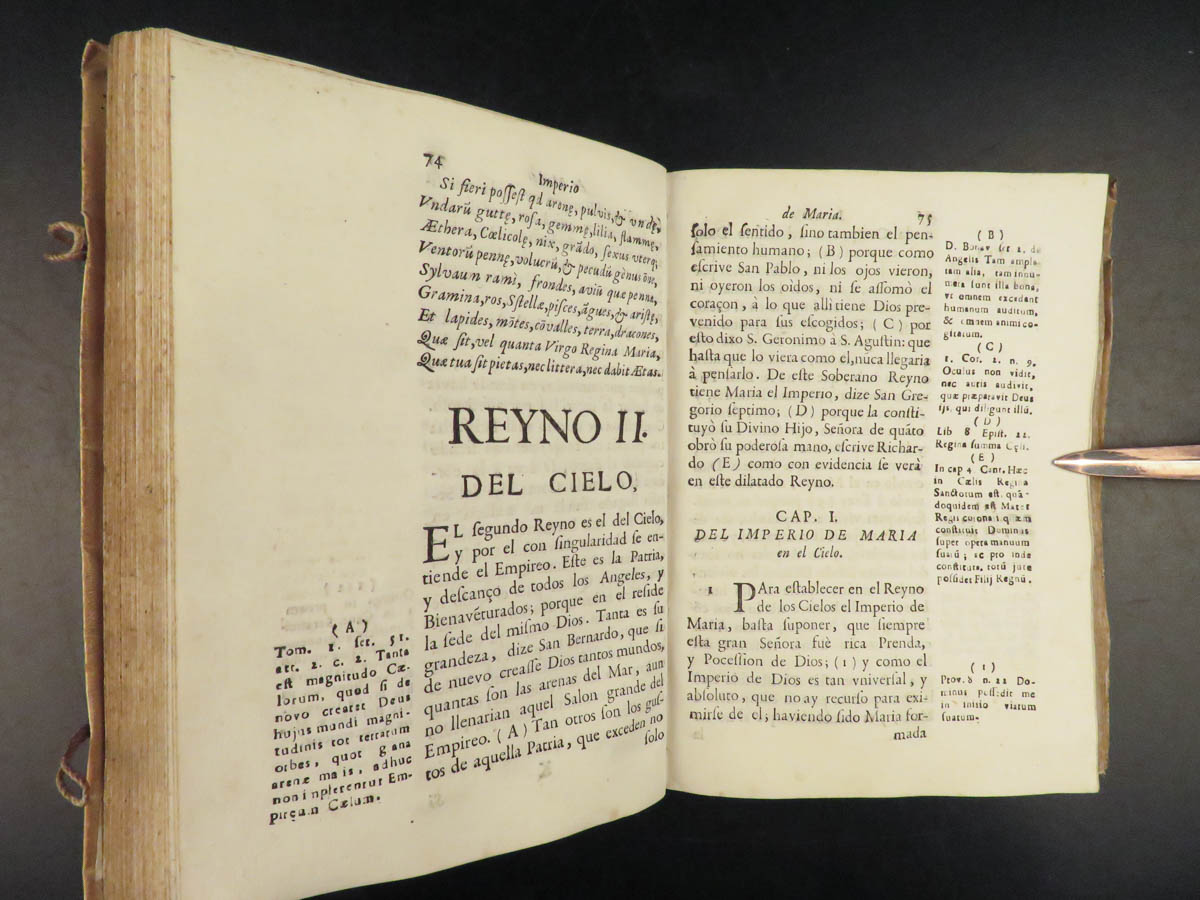 74
Imperio
Si fieri possest qd arenę, pulvis, & vndę,
Vndarū guttę, rosa, gemmę, lilia, flammę,
Æthera, Cœlicolę, nix, grādo, sexus vterq;
Ventorū pennę, volucrū, & pecudū gènus ōne,
Sylvaun rami, frondes, aviū quæ penne,
Gramina, ros, Sstellæ, pisces, āgues, & aristę,
Et lapides, mōtes, cōvalles, terra, dracones,
Quæ sit, vel quanta Virgo Regina Maria,
Quæ tua sit pietas, nec littera, nec dabit Ætas.
REYNO II.
DEL CIELO,
EL segundo Reyno es el del Cielo,
y por el con singularidad se en-
tiende el Empireo. Este es la Patria,
y descanço de todos los Angeles, y
Bienavēturados; porque en el reside
la sede del mismo Dios. Tanta es su
grandeza, dize San Bernardo, que si
de nuevo creasse Dios tantos mundos,
quantas son las arenas del Mar, aun
no llenarian aquel Salon grande del
Empireo. (A) Tan otros son los gus-
tos de aquella Patria, que exceden no
solo
(A)
Tom. 1. ser. 51.
art. 2. c. 2. Tanta
est magnitudo Cæ-
lorum, quod si de
novo crearet Deus
hujus mundi magni-
tudinis tot terrarum
orbes, quot grana
arenæ maris, adhuc
non inplerentur Em-
piręum Cælum.
de Maria.
75
solo el sentido, sino tambien el pen-
samiento humano; (B) porque como
escrive San Pablo, ni los ojos vieron,
ni oyeron los oidos, ni se assomò el
coraçon, à lo que alli tiene Dios pre-
venido para sus escogidos; (C) por
esto dixo S. Geronimo à S. Agustin: que
hasta que lo viera como el, nūca llegaria
à pensarlo. De este Soberano Reyno
tiene Maria el Imperio, dize San Gre-
gorio septimo; (D) porque la consti-
tuyò su Divino Hijo, Señora de quāto
obrò su poderosa mano, escrive Richar-
do (E) como con evidencia se verà
en este dilatado Reyno.
CAP. I.
DEL IMPERIO DE MARIA
en el Cielo.
1 PAra establecer en el Reyno
de los Cielos el Imperio de
Maria, basta suponer, que siempre
esta gran Señora fuè rica Prenda,
y Pocession de Dios; (1) y como el
Imperio de Dios es tan vniversal, y
absoluto, que no ay recurso para exi-
mirse de el; haviendo sido Maria for-
mada
(B)
D. Bonav ser 2. de
Angelis Tam ampla
tam alia, tam innu-
mera sunt illa bona,
ve omnem excedant
humanum auditum,
& emnem animi co-
gitatum.
(C)
1. Cor. 2. n. 9.
Oculus non vidit,
nec auris audivit,
quæ præparavit Deus
ijs, qui diligunt illū.
(D)
Lib 8 Epist. 22.
Regina summa Cęli.
(E)
In cap 4 Cant. Hæc
in Cælis Regina
Sanctorum est. quā-
doquidem est Mater
Regis corona i. quæm
constituis Dominus
super opera manuum
suarū; ac pro inde
constituta. totū jure
possidet Filij Regnū.
(1)
Prov. 8 n. 22 Do-
minus possedit me
in initio viarum
suarum.